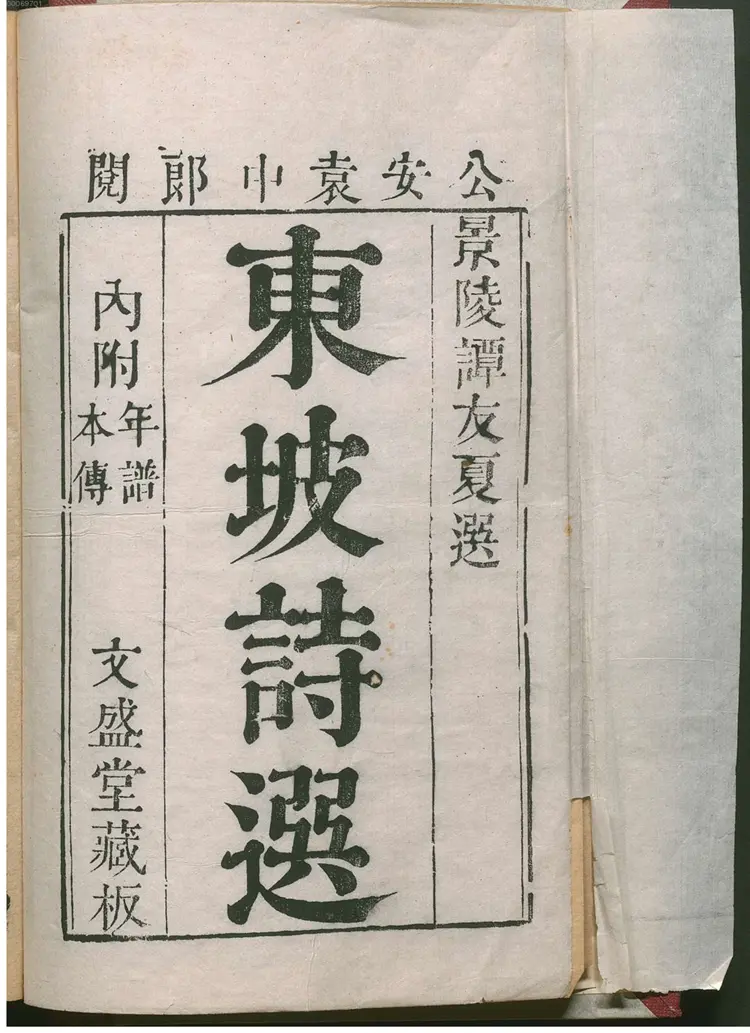 00069701
公安袁中郎閱
景陵譚友夏選
東坡詩選
內附年譜本傳
文盛堂藏板